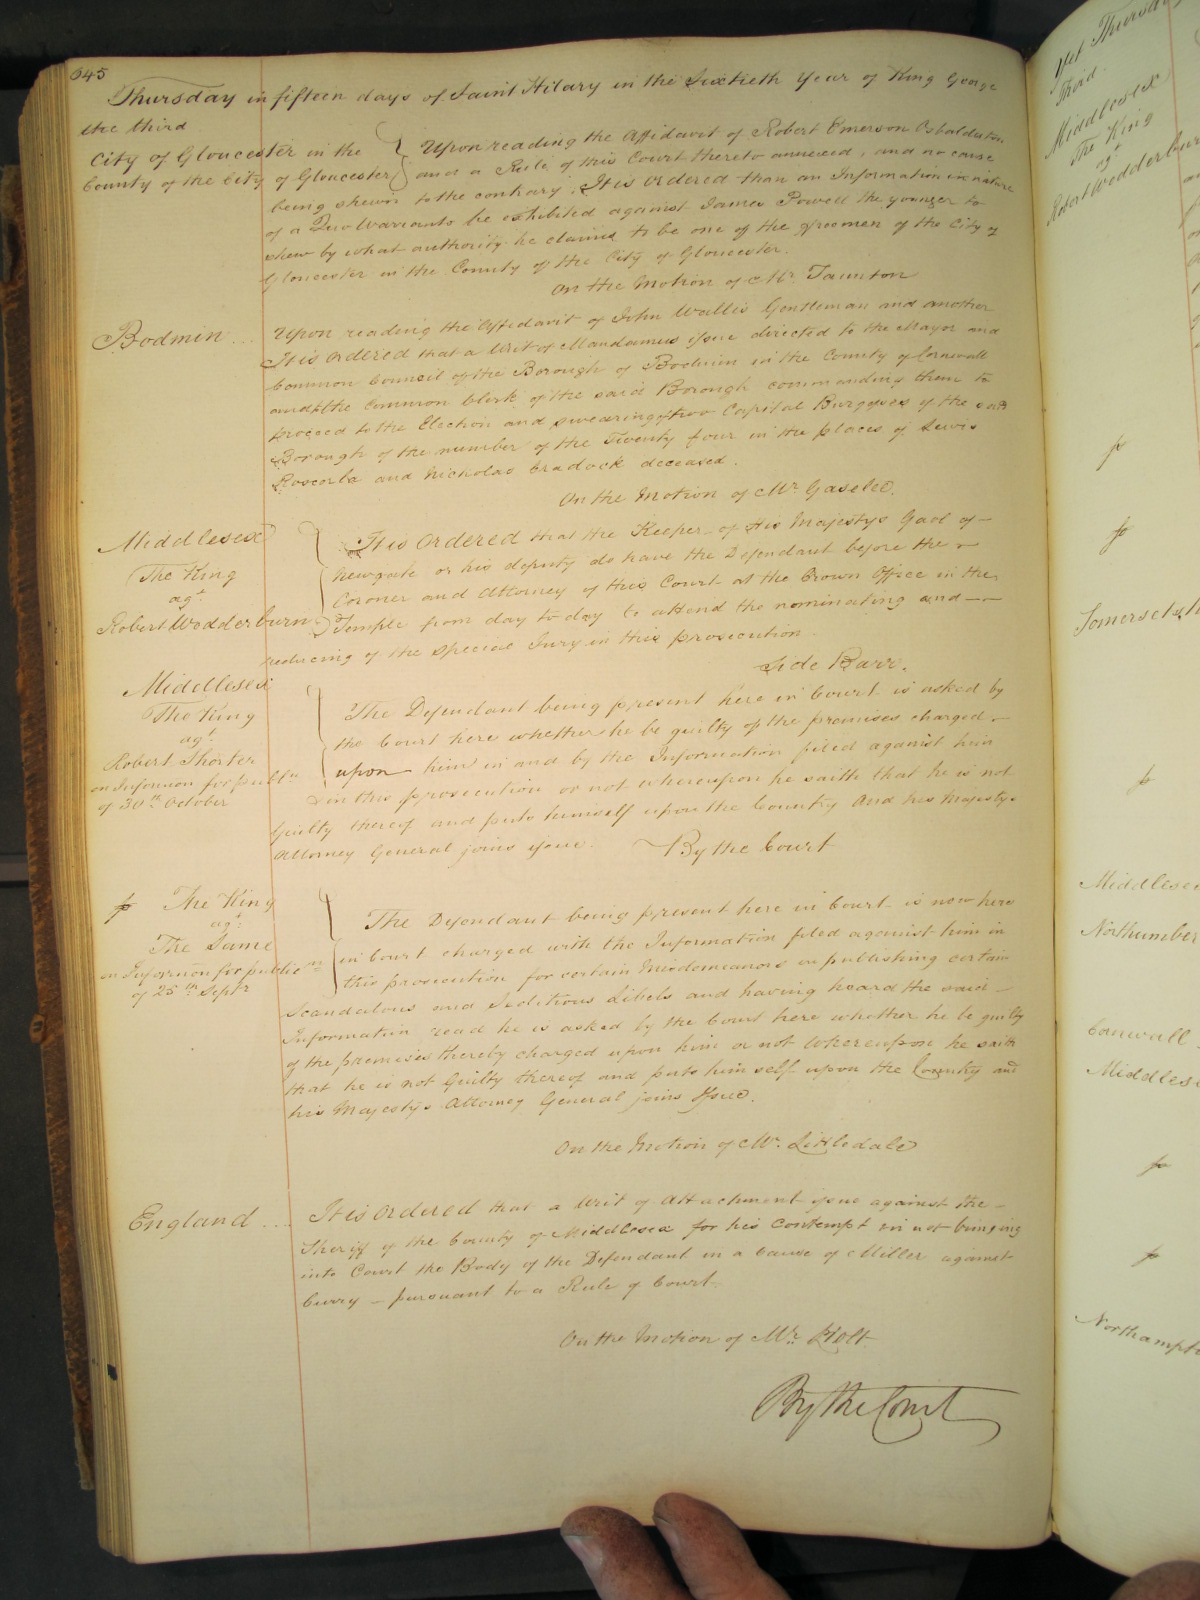 645
Thursday in fifteen days of Saint Hilary in the Sixtieth Year of King George
the third
City of Gloucester in the
County of the City of Gloucester
Upon reading the Affidavit of Robert Emerson Osbaldeston
and a Rule of this Court thereto annexed, and no cause
being shewn to the contrary. It is ordered than an Information in nature
of a Quo Warranto be exhibited against James Powell the younger to
shew by what authority he claims to be one of the freemen of the City of
Gloucester in the County of the City of Gloucester.
On the Motion of Mr. Taunton
Bodmin
Upon reading the Affidavit of John Wallis Gentleman and another
It is ordered that a Writ of Mandamus issue directed to the Mayor and
Common Council of the Borough of Bodmin in the County of Cornwall
and the Common Clerk of the said Borough commanding them to
proceed to the Election and swearing of two Capital Burgesses of the said
Borough of the number of the Twenty four in the places of
and Nicholas Cradock deceased.
On the Motion of Mr Gaselee.
Middlesex
The King
agt.
Robert Wedderburn
It is Ordered that the Keeper of His Majestys Gaol of
Newgate or his deputy do have the Defendant before the
Coroner and Attorney of this Court at the Crown Office in the
Temple from day to day to attend the nominating and
reducing of the special Jury in this prosecution.
Side Barr.
Middlesex
The King
agt.
Robert Shorter
on Informon for publn
of 30th October
The Defendant being present here in Court is asked by
the Court here whether he be guilty of the premises charged
upon him in and by the Information filed against him
in this prosecution or not whereupon he saith that he is not
Guilty thereof and puts himself upon the Country and his Majestys
Attorney General joins issue. By the Court
The King
agt.
The Same
on Informon for publicon
of 25th Septr
The Defendant being present here in Court is now here
in Court charged with the Information filed against him in
this prosecution for certain Misdemeanors in publishing certain
Scandalous and Seditious Libels and having heard the said
Information read he is asked by the Court here whether he be guilty
of the premises thereby charged upon him or not Whereupon he saith
that he is not Guilty thereof and puts himself upon the Country and
his Majestys Attorney General joins Issue.
On the Motion of Mr. Littledale
England
It is Ordered that a Writ of Attachment issue against the
Sheriff of the County of Middlesex for his Contempt in not bringing
into Court the Body of the Defendant in a Cause of Miller against
Curry pursuant to a Rule of Court.
On the Motion of Mr. Holt
By the Court
Yet Thursday
Third.
Middlesex
The King
agt
Robert Wedderburn
Somerset
Middlesex
Northumber
Cornwall
Middlesex
Northampt